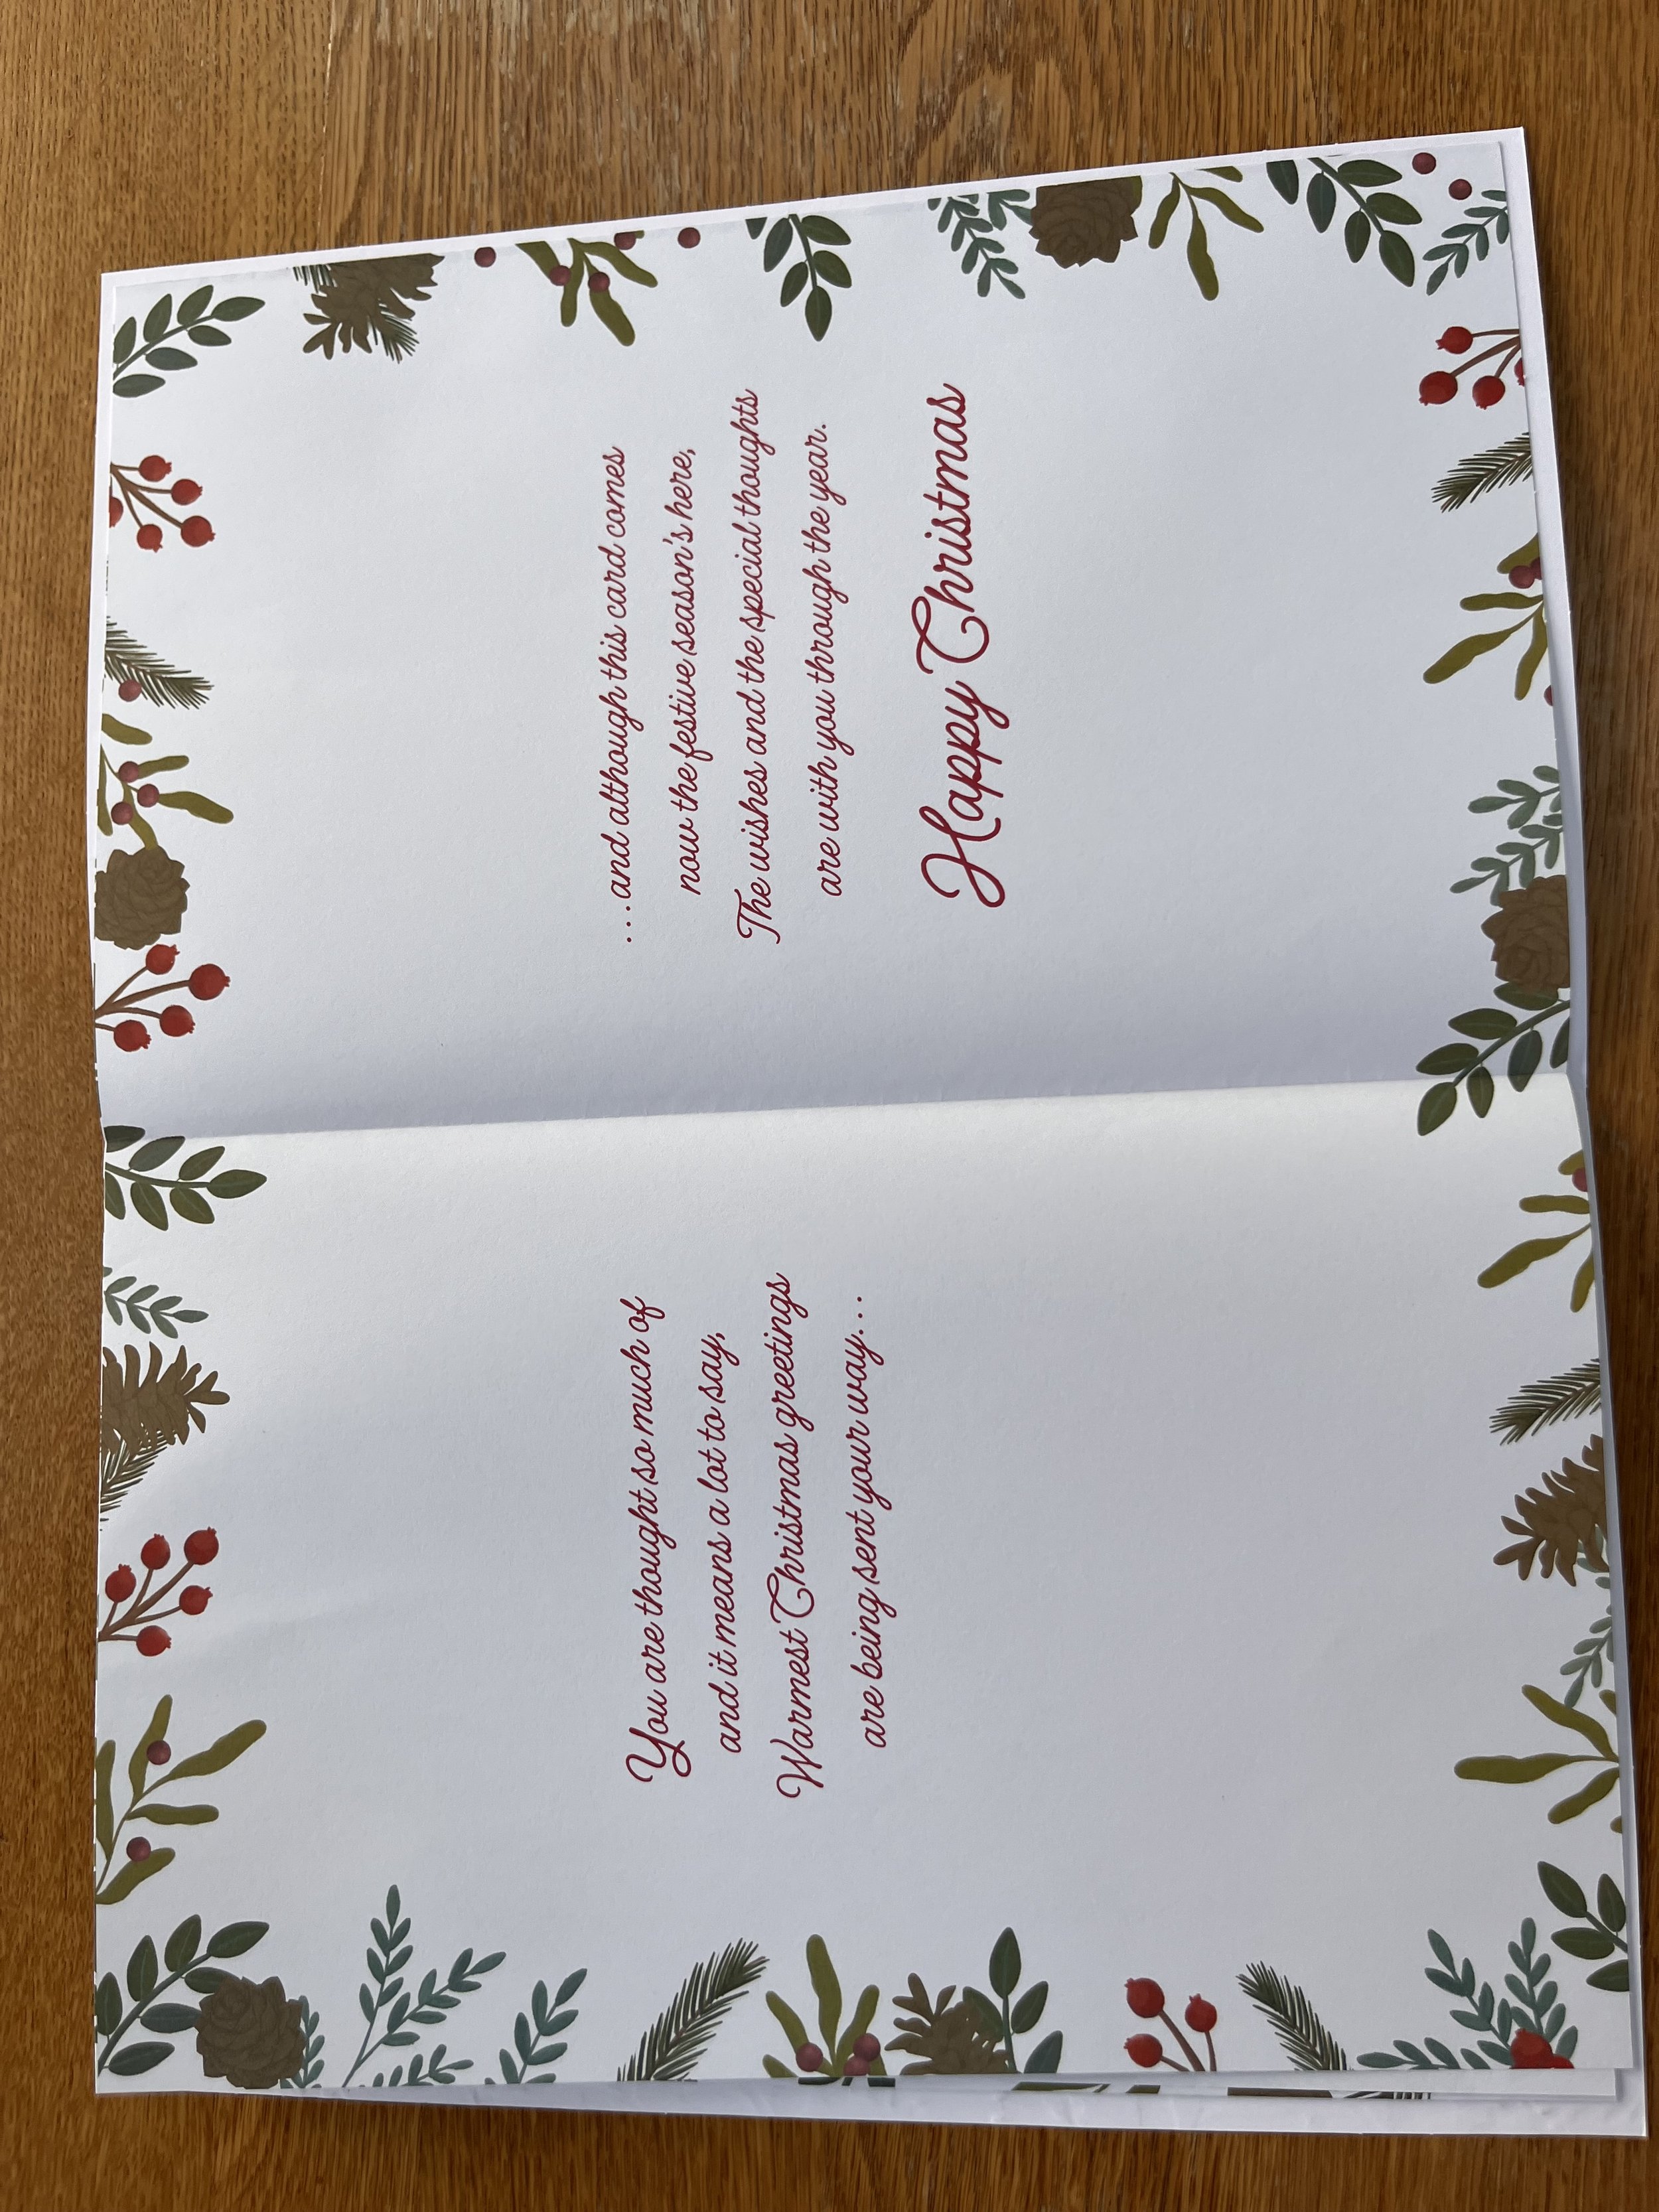 You are thought so much of
and it means a lot to say,
Warmest Christmas greetings
are being sent your way...
...and although this card comes
now the festive season's here,
The wishes and the special thoughts
are with you through the year.
Happy Christmas